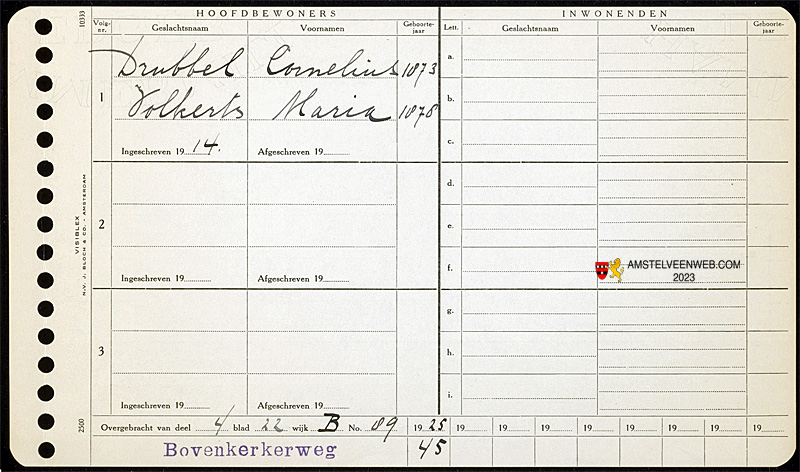 HOOFDBEWONERS
INWONENDEN
10333
Volg-nr.
Geslachtsnaam
Voornamen
Geboorte-jaar
Lett.
Geslachtsnaam
Voornamen
Geboorte-jaar
1
Drubbel Cornelius 1873
Volkerts Maria 1878
Ingeschreven 19 14. Afgeschreven 19
a.
b.
c.
2
Ingeschreven 19 Afgeschreven 19
d.
e.
f.
AMSTELVEENWEB.COM
2023
VISIBLEX
N.V. J. BLOCH & CO. - AMSTERDAM
3
Ingeschreven 19 Afgeschreven 19
g.
h.
i.
2500
Overgebracht van deel 4 blad 22 wijk B No. 89 19 25 19 19 19 19 19 19 19 19
Bovenkerkerweg 45